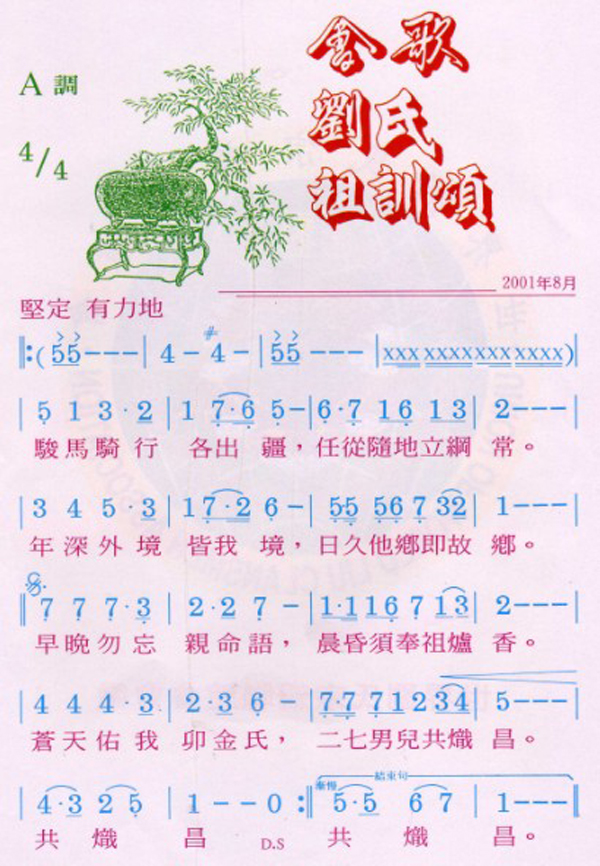 會歌
A 調
劉氏
4/4
祖訓頌
2001年8月
堅定 有力地
‖:( 55--- | 4-#4- | 55 --- | xxx xxxx xxx xxxx )‖
| 5 1 3·2 | 1 7·6 5- | 6·7 16 13 | 2---
駿馬騎行 各出疆，任從隨地立綱常。
| 3 4 5·3 | 17·2 6- | 55 56 7 32 | 1---
年深外境 皆我境，日久他鄉即故鄉。
‖ 7 7 7·3 | 2·2 7 - | 1·1 16 7 13 | 2---
早晚勿忘 親命語，晨昏須奉祖爐香。
| 4 4 4·3 | 2·3 6 - | 7·7 71 2 34 | 5---
蒼天佑我 卯金氏，二七男兒共熾昌。
漸慢 結束句
| 4·3 2 5 | 1--0 :‖ 5·5 6 7 | 1--- |
共熾昌 D.S 共熾昌。